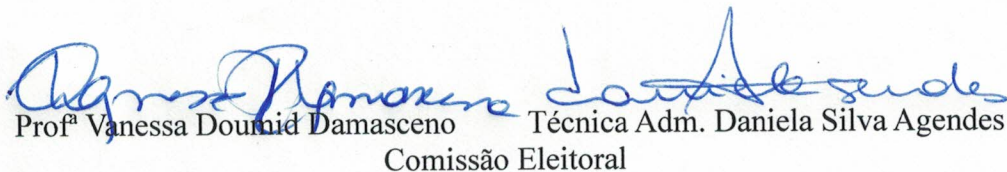 Profª Vanessa Doumid Damasceno Técnica Adm. Daniela Silva Agendes
Comissão Eleitoral